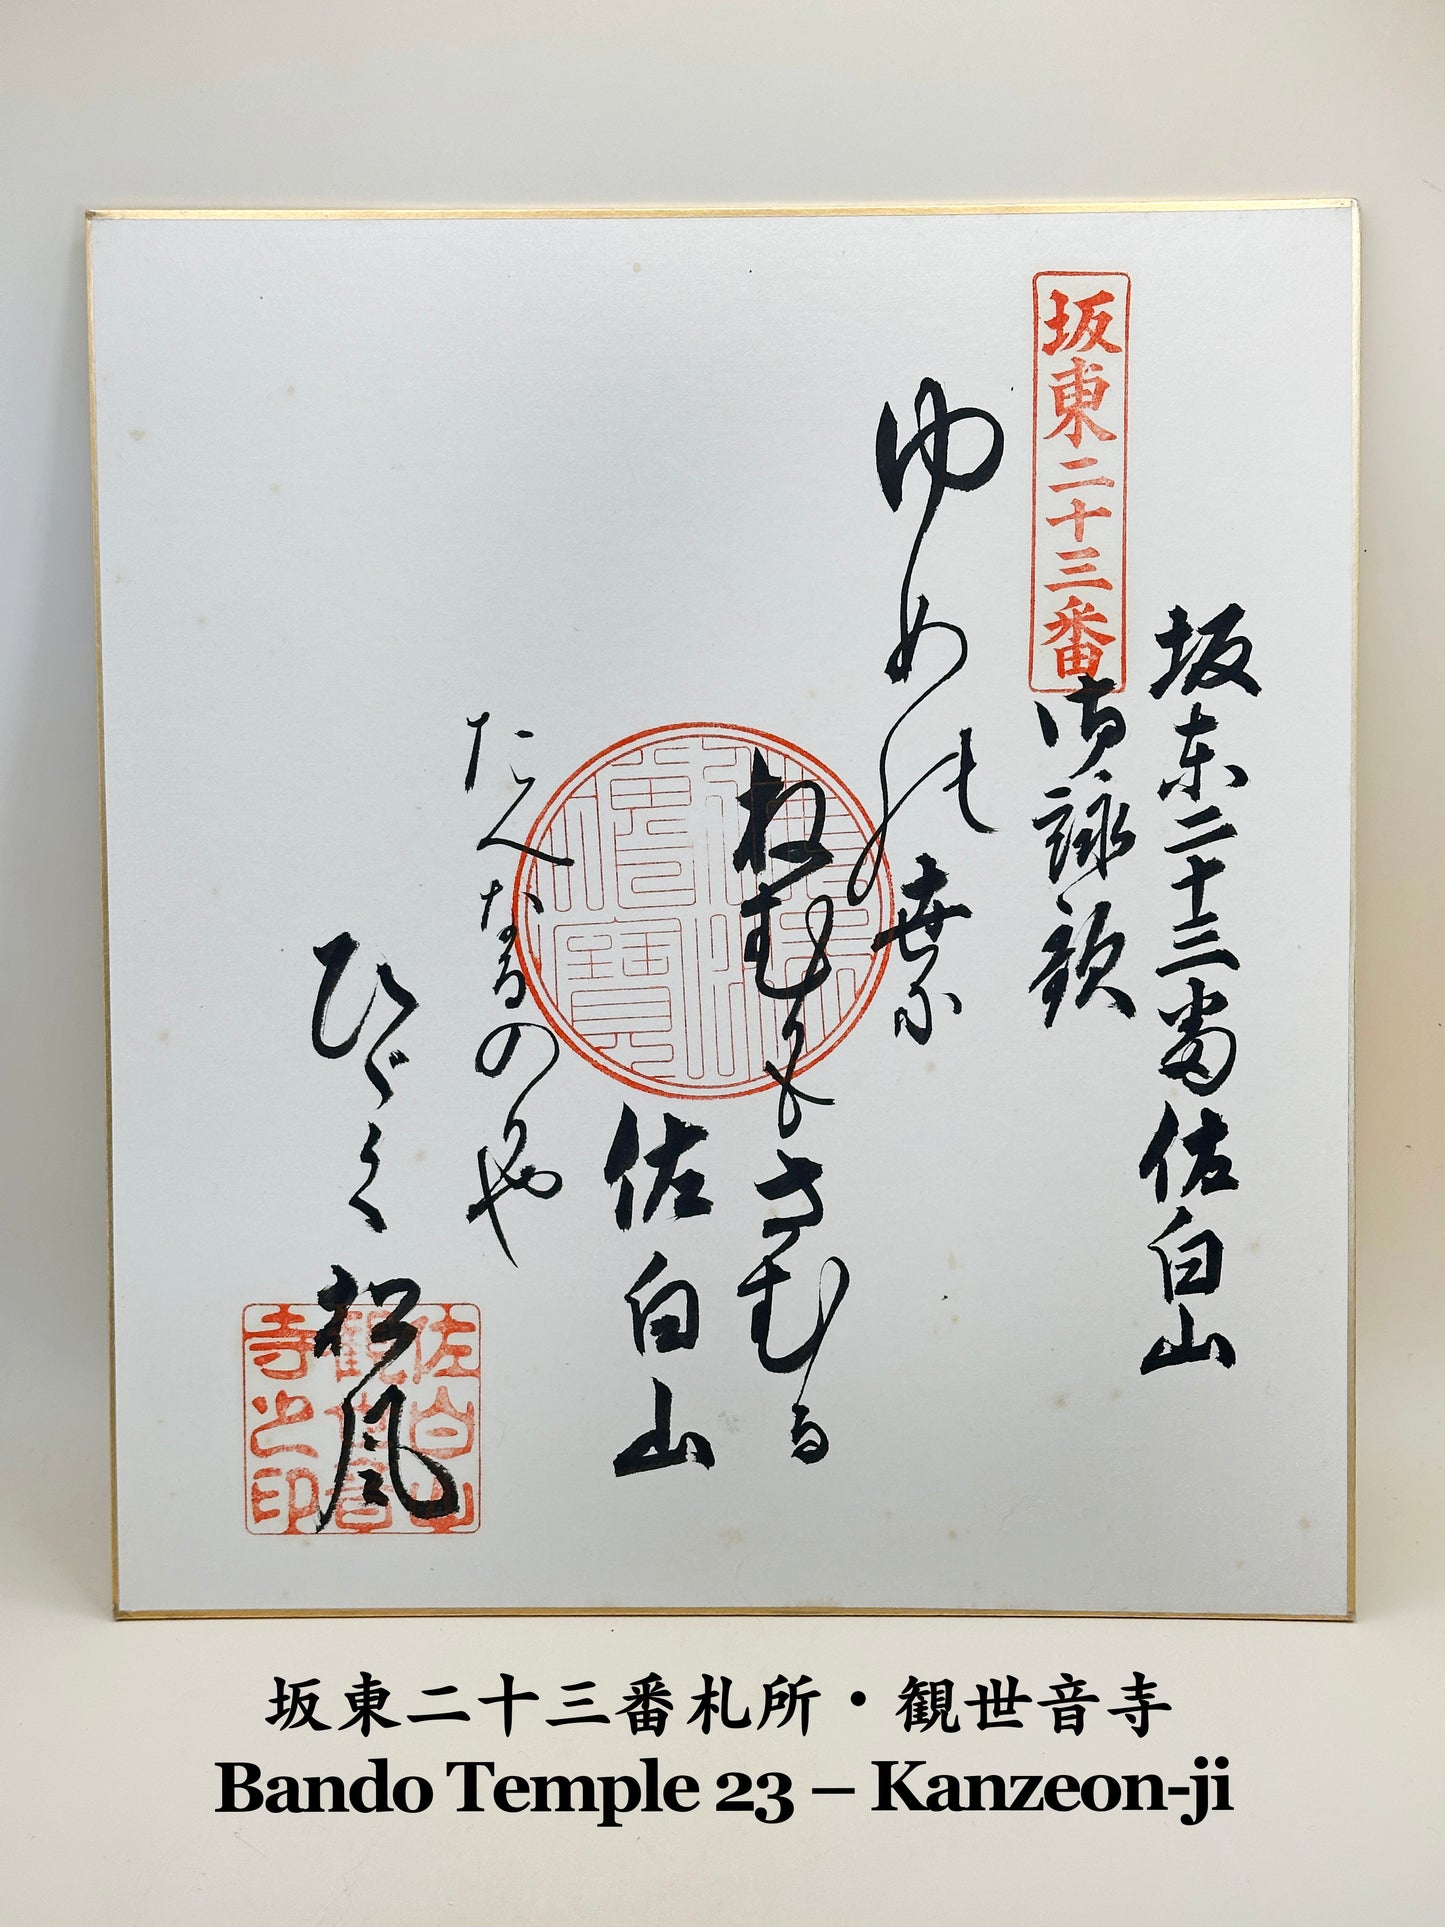 坂東二十三番佐白山
坂東二十三番
御詠歌
ゆめの世に
ねむりもさむる
佐白山
たへなるのりや
ひゞく松風
佛法僧寶
佐白山
観世音
寺之印
坂東二十三番札所・観世音寺
Bando Temple 23 – Kanzeon-ji